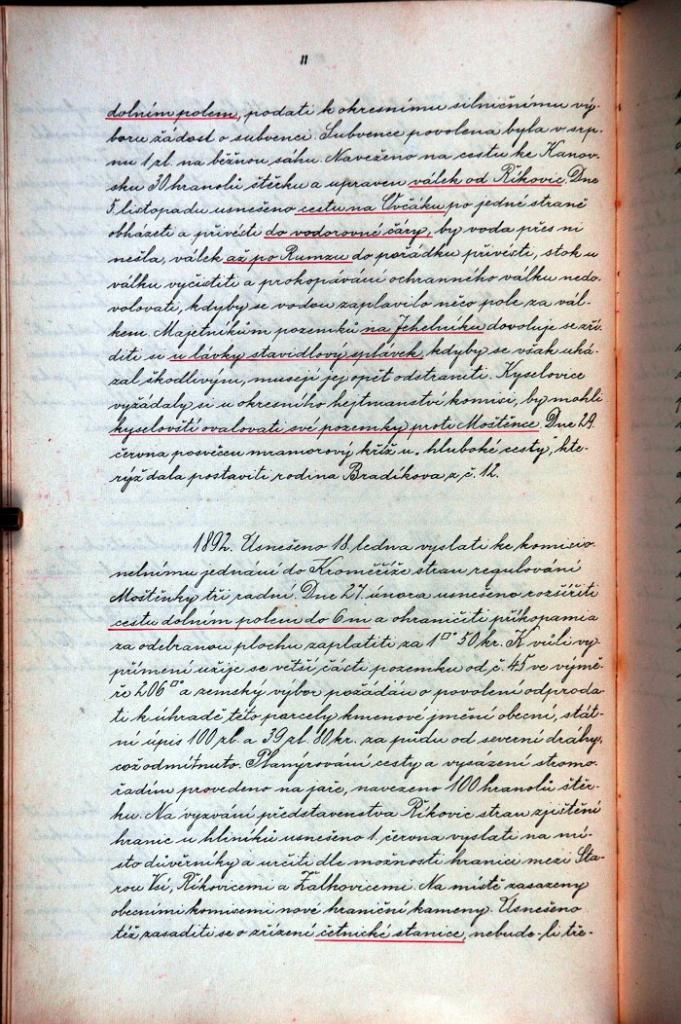 11
dolním polem, podati k okresnímu silničnímu vý-
boru žádost o subvenci. Subvence povolena byla v srp-
nu 1 zl. na běžnou sáhu. Navezeno na cestu ke Kanov-
sku 30 hranolů štěrku a upraven válek od Říkovic. Dne
5. listopadu usnešeno cestu na Ovčáku po jedné straně
obházeti a přivésti do vodorovné čáry, by voda přes ni
nešla, válek až po Rumzu do pořádku přivésti, stok u
válku vyčistiti a prokopávání ochranného válku nedo-
volovati, kdyby se vodou zaplavilo něco pole za vál-
kem. Majetníkům pozemků na Jehelníku dovoluje se zří-
diti si u lávky stavidlový splávek, kdyby se však uká-
zal škodlivým, musejí jej opět odstraniti. Kyselovice
vyžádaly si u okresního hejtmanství komisi, by mohli
kyselovští ovalovati své pozemky proti Moštěnce. Dne 29.
června posvěcen mramorový kříž u „hluboké cesty", kte-
rýž dala postaviti rodina Bradíkova z č. 12.
1892. Usnešeno 18. ledna vyslati ke komisio-
nelnímu jednání do Kroměříže stran regulování
Moštěnky tři radní. Dne 27. února usneseno rozšířiti
cestu dolním polem do 6 m a ohraničiti příkopami a
za odebranou plochu zaplatiti za 1□° 50 kr. K vůli vy-
přímení užije se větší části pozemku od č. 45 ve výmě-
ře 206□° a zemský výbor požádán o povolení odproda-
ti k úhradě této parcely kmenové jmění obecní, stát-
ní úpis 100 zl. a 39 zl. 80 kr. za půdu od severní dráhy,
což odmítnuto. Planýrování cesty a vysázení stromo-
řadím provedeno na jaře, navezeno 100 hranolů štěr-
ku. Na vyzvání představenstva Říkovic stran zjištění
hranic u hliníků usnešeno 1. června vyslati na mí-
sto důvěrníky a určiti dle možnosti hranici mezi Sta-
rou Vsí, Říkovicemi a Žalkovicemi. Na místě zasazeny
obecními komisemi nové hraniční kameny. Usnešeno
též zasaditi se o zřízení četnické stanice, nebude-li tře-